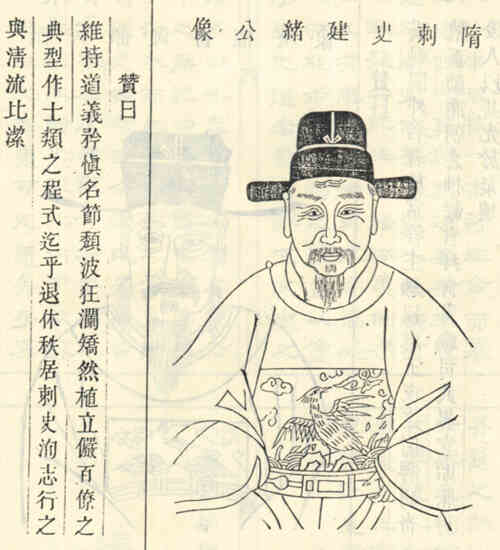 隋刺史建緒公像
贊曰
維持道義矜慎名節頽波狂瀾矯然植立儼百僚之
典型作士類之程式迄乎退休秩居刺史洵志行之
與清流比潔